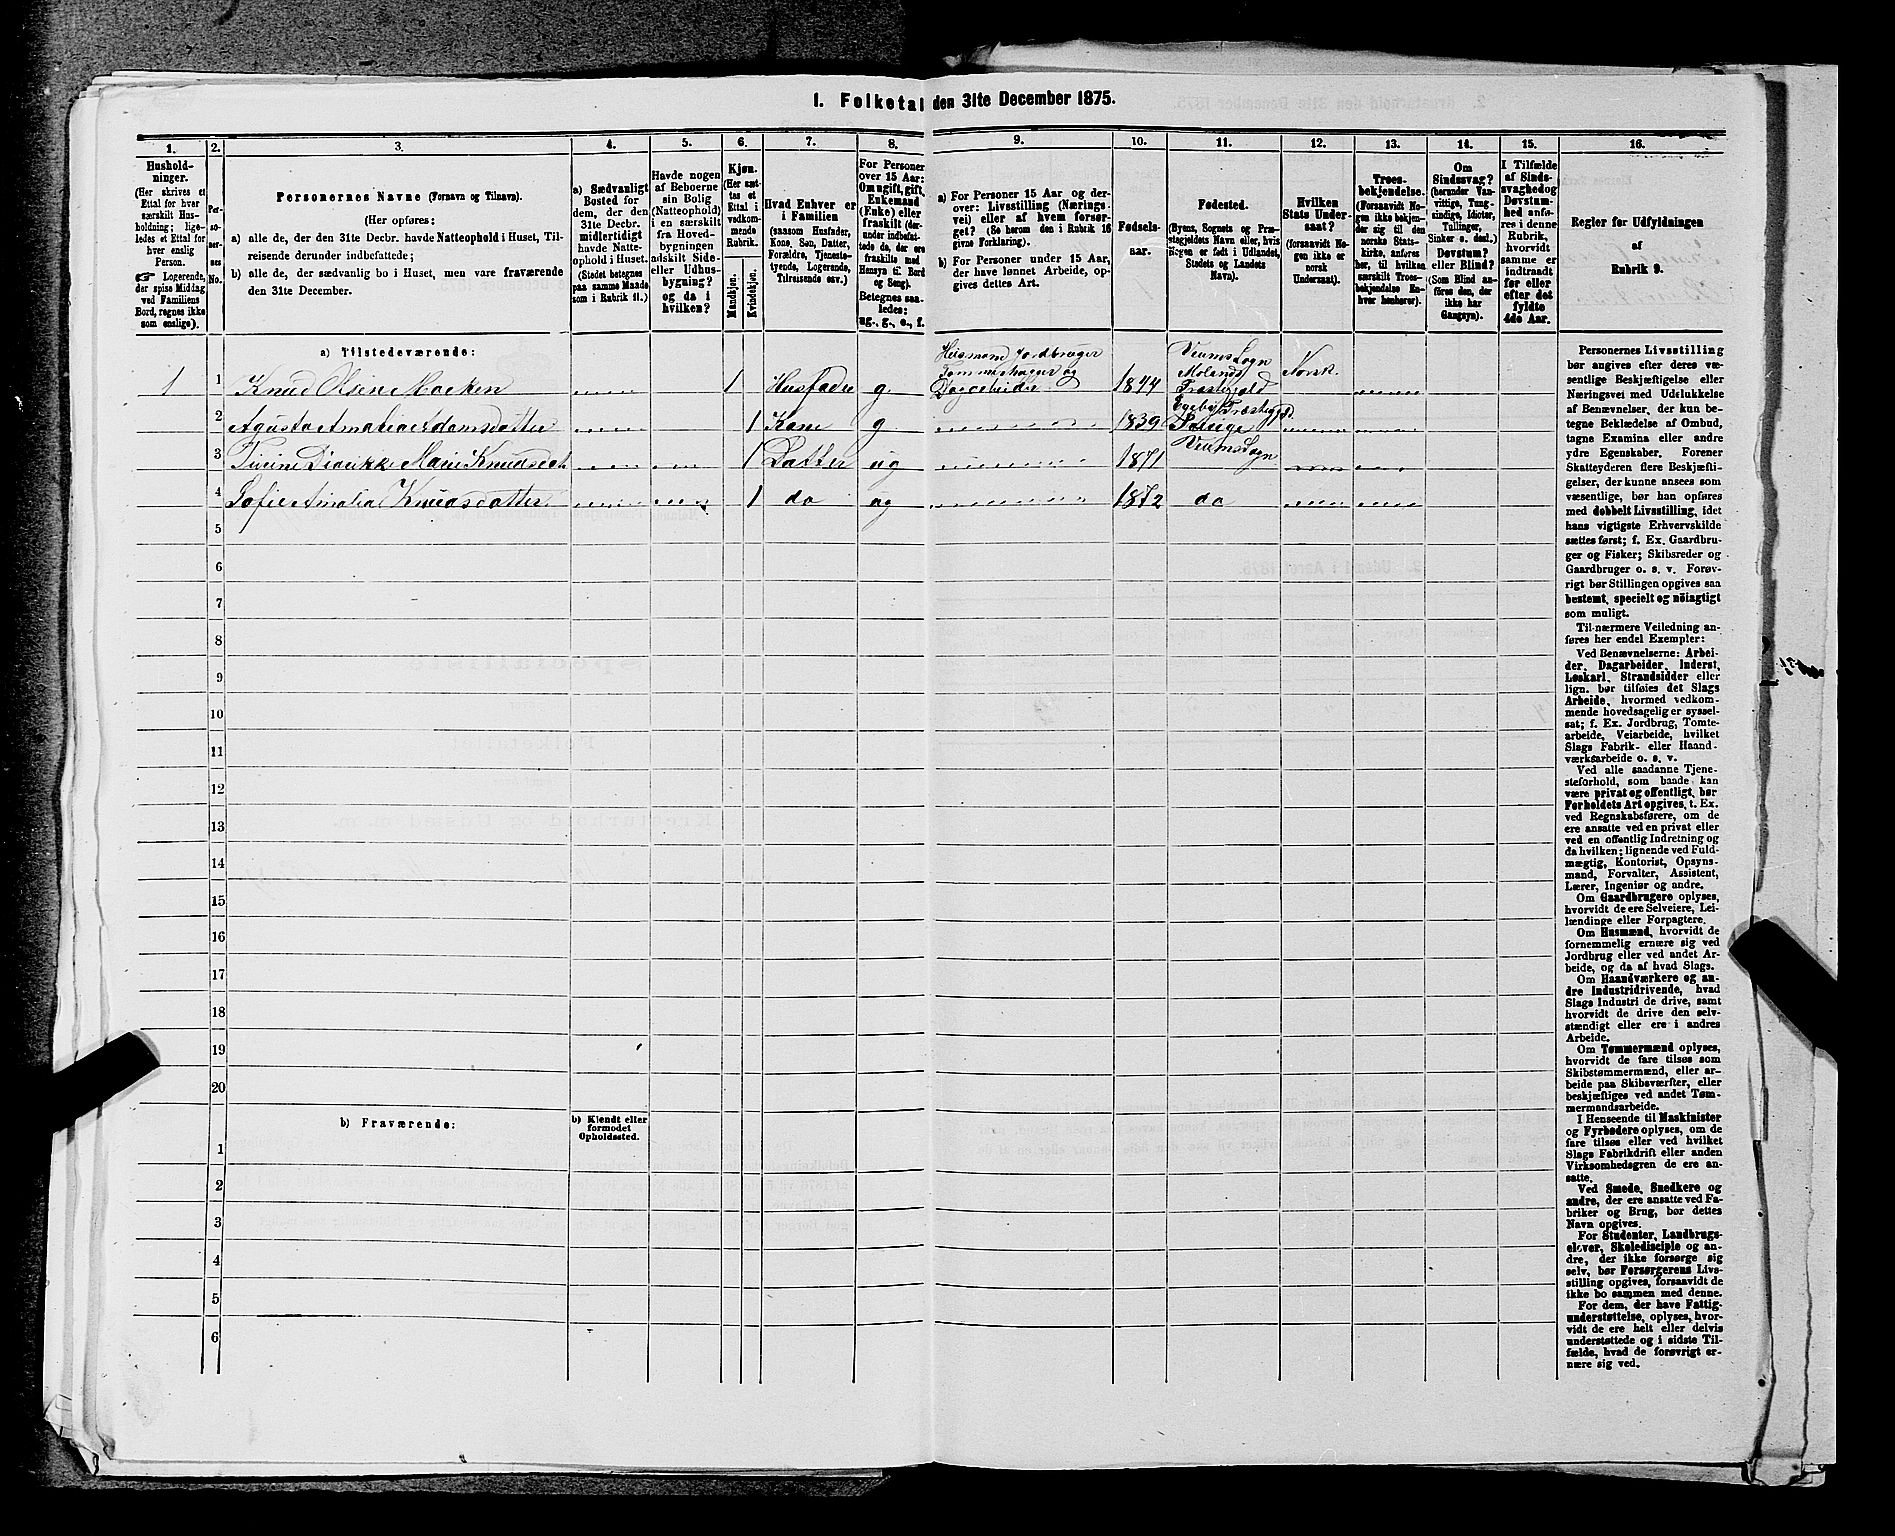 I. Folketal den 31te December 1875.
1. 2. 3. 4. 5. 6. 7. 8. 9. 10. 11. 12. 13. 14. 15. 16.
Hushold-
ninger.
(Her skrives et
Ettal for hver
særskilt Hus-
holdning; lige-
ledes et Ettal for
hver enslig
Person.
☞ Logerende,
der spise Middag
ved Familiens
Bord, regnes ikke
som enslige).
Per-
so-
ner-
nes
No.
Personernes Navne (Fornavn og Tilnavn).
(Her opføres:
a) alle de, der den 31te Decbr. havde Natteophold i Huset, Til-
reisende derunder indbefattede;
b) alle de, der sædvanlig bo i Huset, men vare fraværende
den 31te December.
a) Sædvanligt
Bosted for
dem, der den
31te Decbr.
midlertidigt
havde Natte-
ophold i Huset.
(Stedet betegnes
paa samme Maade
som i Rubrik 11.)
Havde nogen
af Beboerne
sin Bolig
(Natteophold)
i en særskilt
fra Hoved-
bygningen
adskilt Side-
eller Udhus-
bygning?
og da i
hvilken?
Kjøn.
(Her sæt-
tes et
Ettal i
vedkom-
mende
Rubrik.
Mandkjøn.
Kvindekjøn.
Hvad Enhver er
i Familien
(saasom Husfader,
Kone, Søn, Datter,
Forældre, Tjeneste-
tyende, Logerende,
Tilreisende osv.)
For Personer
over 15 Aar:
Om ugift, gift,
Enkemand
(Enke) eller
fraskilt (der-
under indbefat-
tede de, der ere
fraskilte med
Hensyn til Bord
og Seng).
Betegnes saa-
ledes:
ug., g., e., f.
a) For Personer 15 Aar og der-
over: Livsstilling (Nærings-
vei) eller af hvem forsør-
get? (Se herom den i Rubrik 16
givne Forklaring).
b) For Personer under 15 Aar,
der have lønnet Arbeide, op-
gives dettes Art.
Fødsels-
aar.
Fødested.
(Byens, Sognets og Præ-
stegjeldets Navn eller, hvis
Nogen er født i Udlandet,
Stedets og Landets
Navn).
Hvilken
Stats Under-
saat?
(forsaavidt No-
gen ikke er
norsk
Undersaat).
Troes-
bekjendelse.
(Forsaavidt No-
gen ikke bekjen-
der sig til den
norske Stats-
kirke, anføres
her, til hvilken
særskilt Troes-
bekjendelse En-
hver henhører).
Om
Sindssvag?
(herunder Van-
vittige, Tung-
sindige, Idioter,
Tullinger,
Sinker o. desl.)
Døvstum?
eller Blind?
(Som Blind an-
føres den, der
ikke har
Gangsyn).
I Tilfælde
af Sinds-
svaghed og
Døvstum-
hed anfø-
res i denne
Rubrik,
hvorvidt
samme er
indtraadt
før eller
efter det
fyldte
4de Aar.
Regler for Udfyldningen
af
Rubrik 9.
a) Tilstedeværende:
Husmand Jordbruger
Tømmerhuger og
1 1 Knud Olsen Moeken 1 Husfader g. Dagarbeider 1844 Veums Sogn
Molands
Præstegjeld Norsk
2 Agusta Amalia Adamsdatter 1 Kone g. 1839
3 Marie Knudsdat 1 Datter ug 1871 Veums Sogn
4 Sofie Amalia Knudsdatter 1 do ug 1872 do
5
6
7
8
9
10
11
12
13
14
15
16
17
18
19
20
b) Fraværende:
b) Kjendt eller
formodet
Opholdssted.
1
2
3
4
5
6
Personernes Livsstilling
bør angives efter deres væ-
sentlige Beskjæftigelse eller
Næringsvei med Udelukkelse
af Benævnelser, der kun be-
tegne Beklædelse af Ombud,
tagne Examina eller andre
ydre Egenskaber. Forener
Skatteyderen flere Beskjæfti-
gelser, der kunne ansees som
væsentlige, bør han opføres
med dobbelt Livsstilling, idet
hans vigtigste Erhvervskilde
sættes først; f. Ex. Gaardbru-
ger og Fisker; Skibsreder og
Gaardbruger o. s. v. Forøv-
rigt bør Stillingen opgives saa
bestemt, specielt og nöiagtigt
som muligt.
Til nærmere Veiledning an-
føres her endel Exempler:
Ved Benævnelserne: Arbei-
der, Dagarbeider, Inderst,
Løskarl, Strandsidder eller
lign. bør tilføies det Slags
Arbeide, hvormed vedkom-
mende hovedsagelig er syssel-
sat; f. Ex. Jordbrug, Tomte-
arbeide, Veiarbeide, hvilket
Slags Fabrik- eller Haand-
værksarbeide o. s. v.
Ved alle saadanne Tjene-
steforhold, som baade kan
være privat og offentligt, bør
Forholdets Art opgives, t. Ex.
ved Regnskabsførere, om de
ere ansatte ved en privat eller
ved en offentlig Indretning og
da hvilken; lignende ved Fuld-
mægtig, Kontorist, Opsyns-
mand, Forvalter, Assistent,
Lærer, Ingeniør og andre.
Om Gaardbrugere oplyses,
hvorvidt de ere Selveiere, Lei-
lændinge eller Forpagtere.
Om Husmænd, hvorvidt de
fornemmelig ernære sig ved
Jordbrug eller ved andet Ar-
beide, og da af hvad Slags.
Om Haandværkere og an-
dre Industridrivende, hvad
Slags Industri de drive, samt
hvorvidt de drive den selv-
stændigt eller ere i andres
Arbeide.
Om Tømmermænd oplyses,
hvorvidt de fare tilsøs som
Skibstømmermænd, eller ar-
beide paa Skibsværfter, eller
beskjæftiges ved andet Tøm-
mermandsarbeide.
I Henseende til Maskinister
og Fyrbødere oplyses, om de
fare tilsøs eller ved hvilket
Slags Fabrikdrift eller anden
Virksomhedsgren de ere an-
satte.
Ved Smede, Snedkere og
andre, der ere ansatte ved Fa-
briker og Brug, bør dettes
Navn opgives.
For Studenter, Landbrugs-
elever, Skoledisciple og an-
dre, der ikke forsørge sig
selv, bør Forsørgerens Livs-
stilling opgives, forsaavidt de
ikke bo sammen med denne.
For dem, der have Fattig-
understøttelse, oplyses, hvor-
vidt de ere helt eller delvis
understøttede og i sidste Til-
fælde, hvad de forøvrigt er-
nære sig ved.